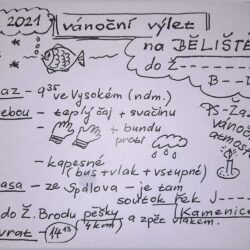 2021 vánoční výlet
na BĚLIŠTĚ
do Ž
B
az - 9³⁵ ve Vysokém (ndm.)
ebou - teplý čaj + svačinu
+ bundu
proti
PS-Ža
vánoč
atmosf
- kapesné
(bus + vlak + vstupné)
asa - ze Špálova - je tam
soutok řek J
Kamenice
do Ž. Brodu pěšky
4km a zpět vlakem.
vrat - 14¹³